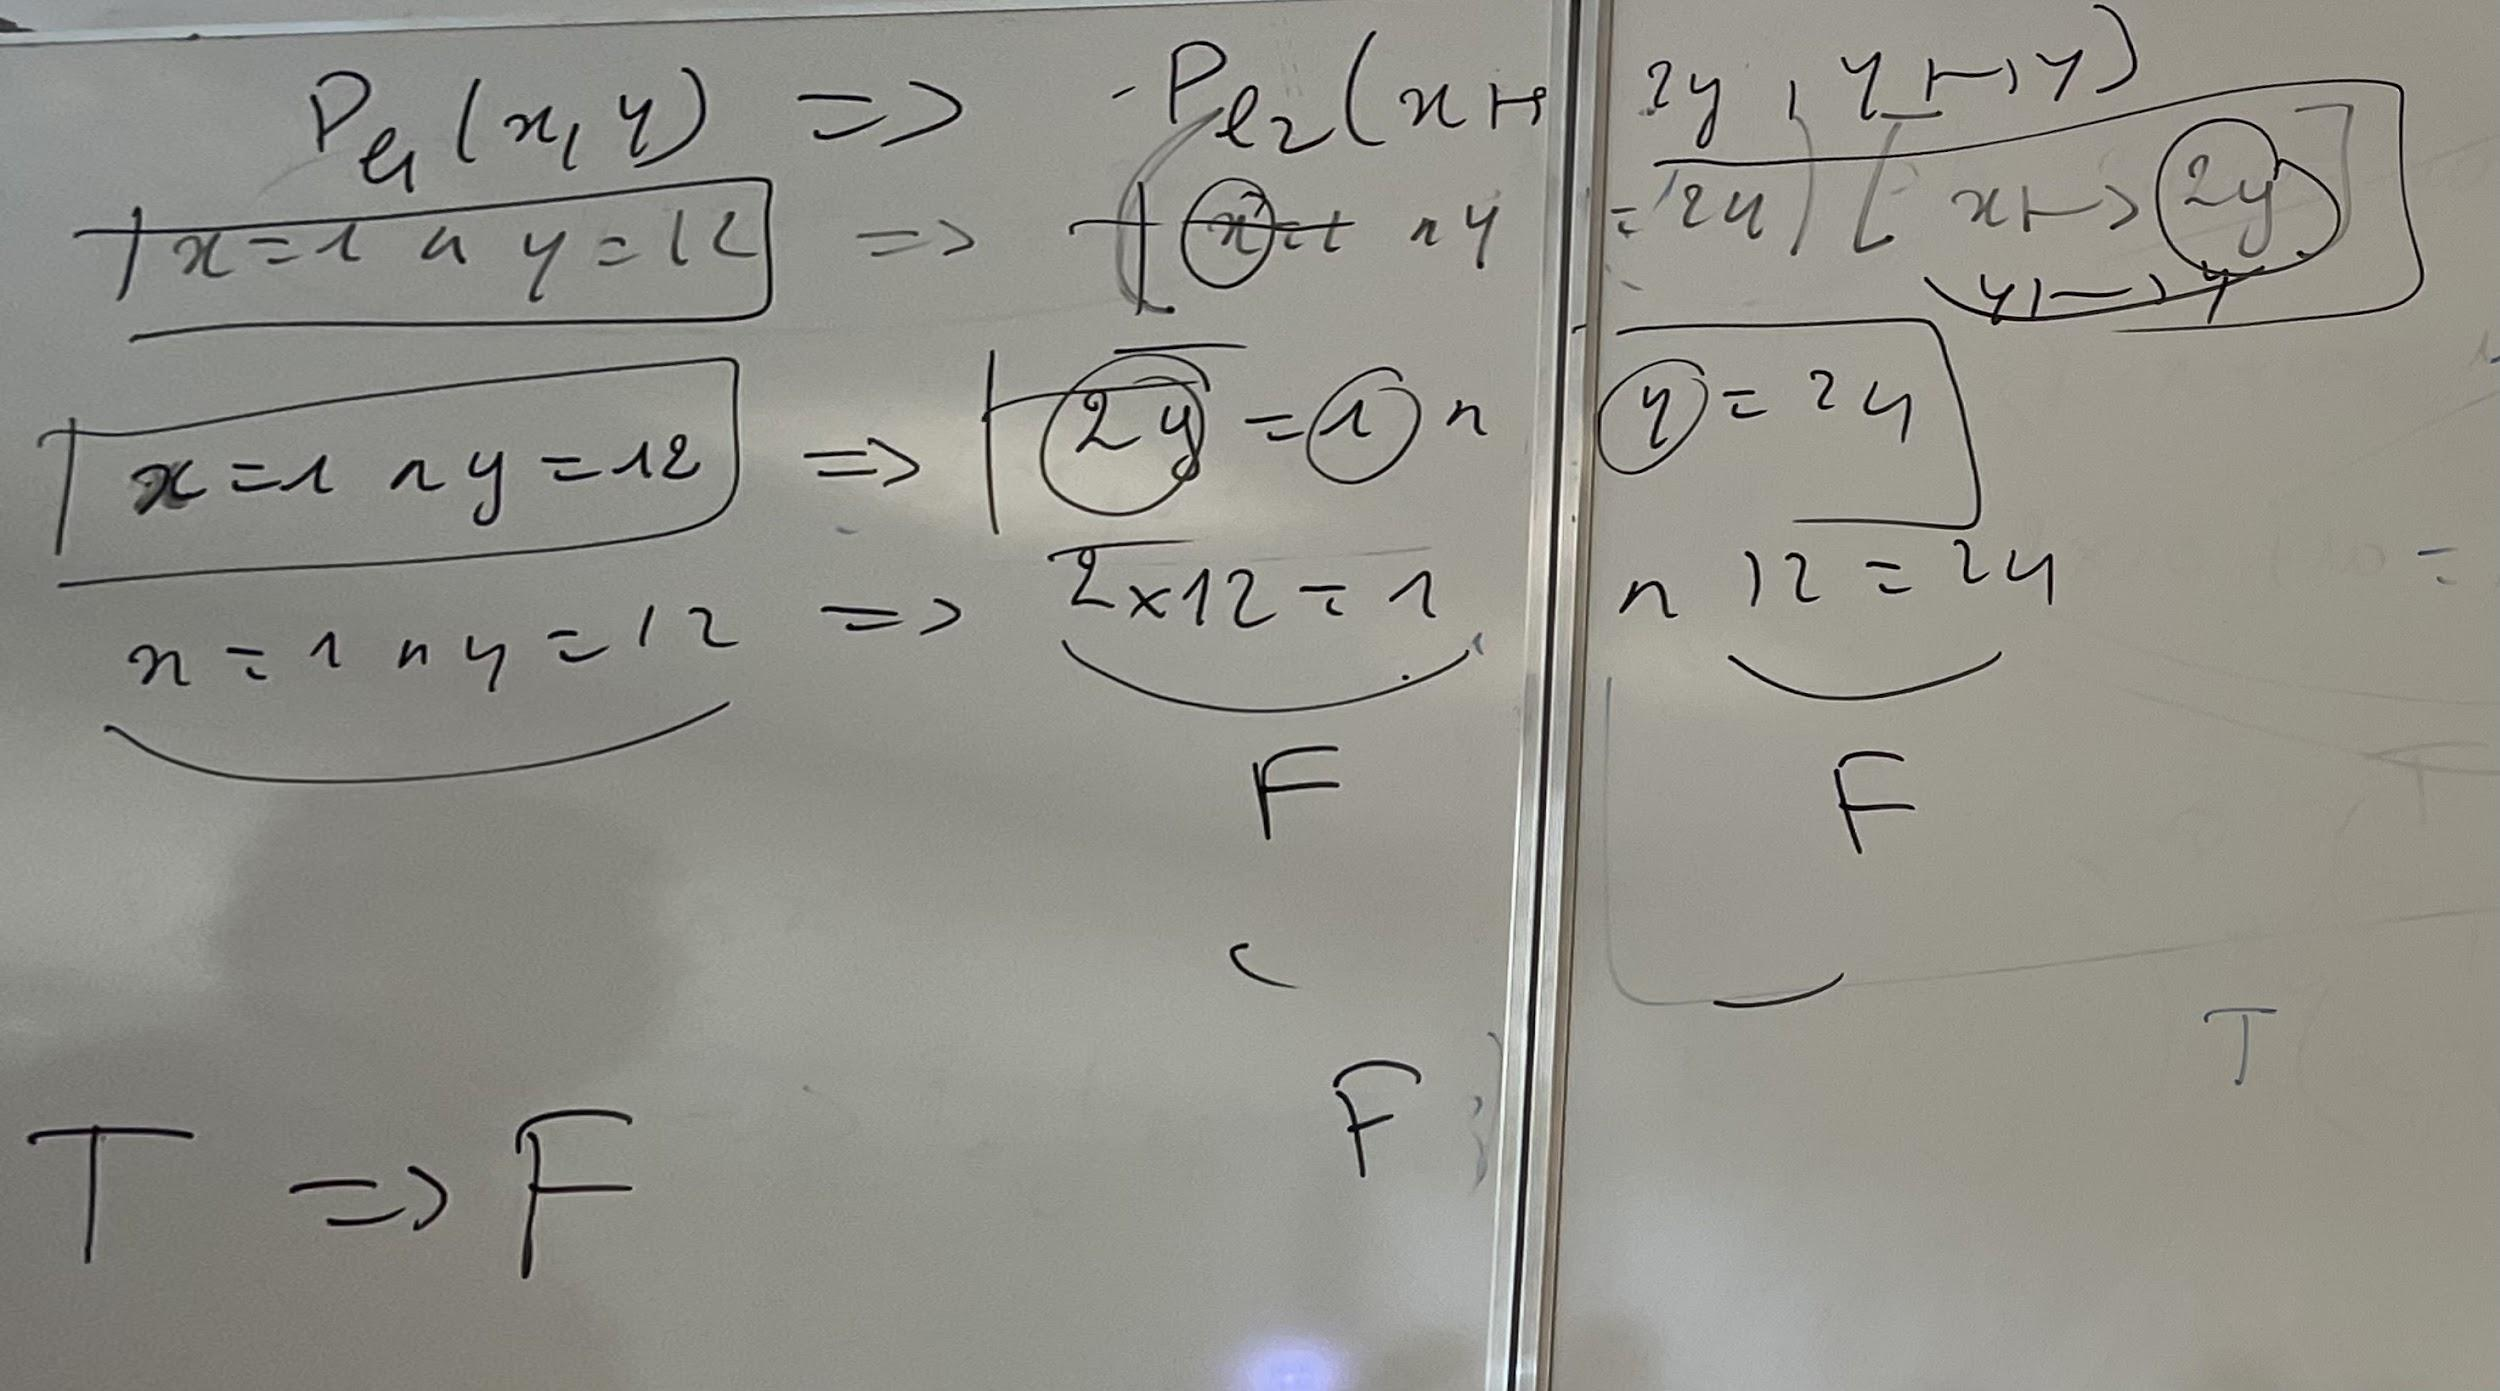 Pℓ1 (x, y) => Pℓ2 (x ↦ 2y, y ↦ y)
x = 1 ∧ y = 12 => (x = 1 ∧ y = 24) [x ↦ 2y
y ↦ y
x = 1 ∧ y = 12 => 2y = 1 ∧ y = 24
x = 1 ∧ y = 12 => 2×12 = 1 ∧ 12 = 24
F F
T
F
T => F